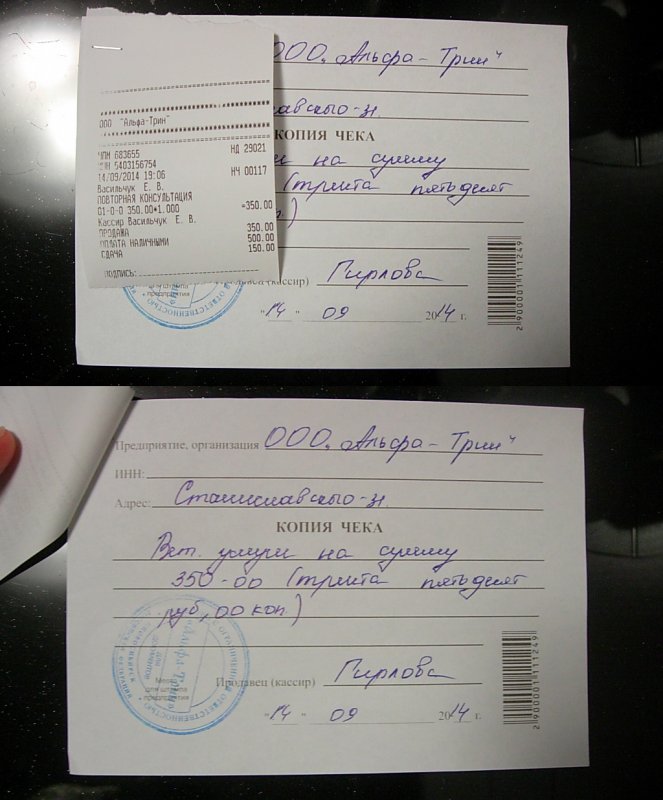 ООО "Альфа-Трин"
авского-31.
КОПИЯ ЧЕКА
на сумму
(триста пятьдесят
ООО "Альфа-Трин"
ЧПМ 683655 НД 29021
ИНН 5403156754
14/09/2014 19:06 НЧ 00117
Васильчук Е. В.
ПОВТОРНАЯ КОНСУЛЬТАЦИЯ
01-0-0 350.00*1.000 =350.00
Кассир Васильчук Е. В.
ПРОДАЖА 350.00
ОПЛАТА НАЛИЧНЫМИ 500.00
СДАЧА 150.00
ПОДПИСЬ:
(кассир) Гирлова
"14" 09 2014 г.
2 900001 111249
Предприятие, организация ООО "Альфа-Трин"
ИНН:
Адрес: Станиславского-31.
КОПИЯ ЧЕКА
Вет. услуги на сумму
350-00 (триста пятьдесят
руб, 00 коп.)
Место для штампа предприятия
Продавец (кассир) Гирлова
"14" 09 2014 г.
2 900001 111249